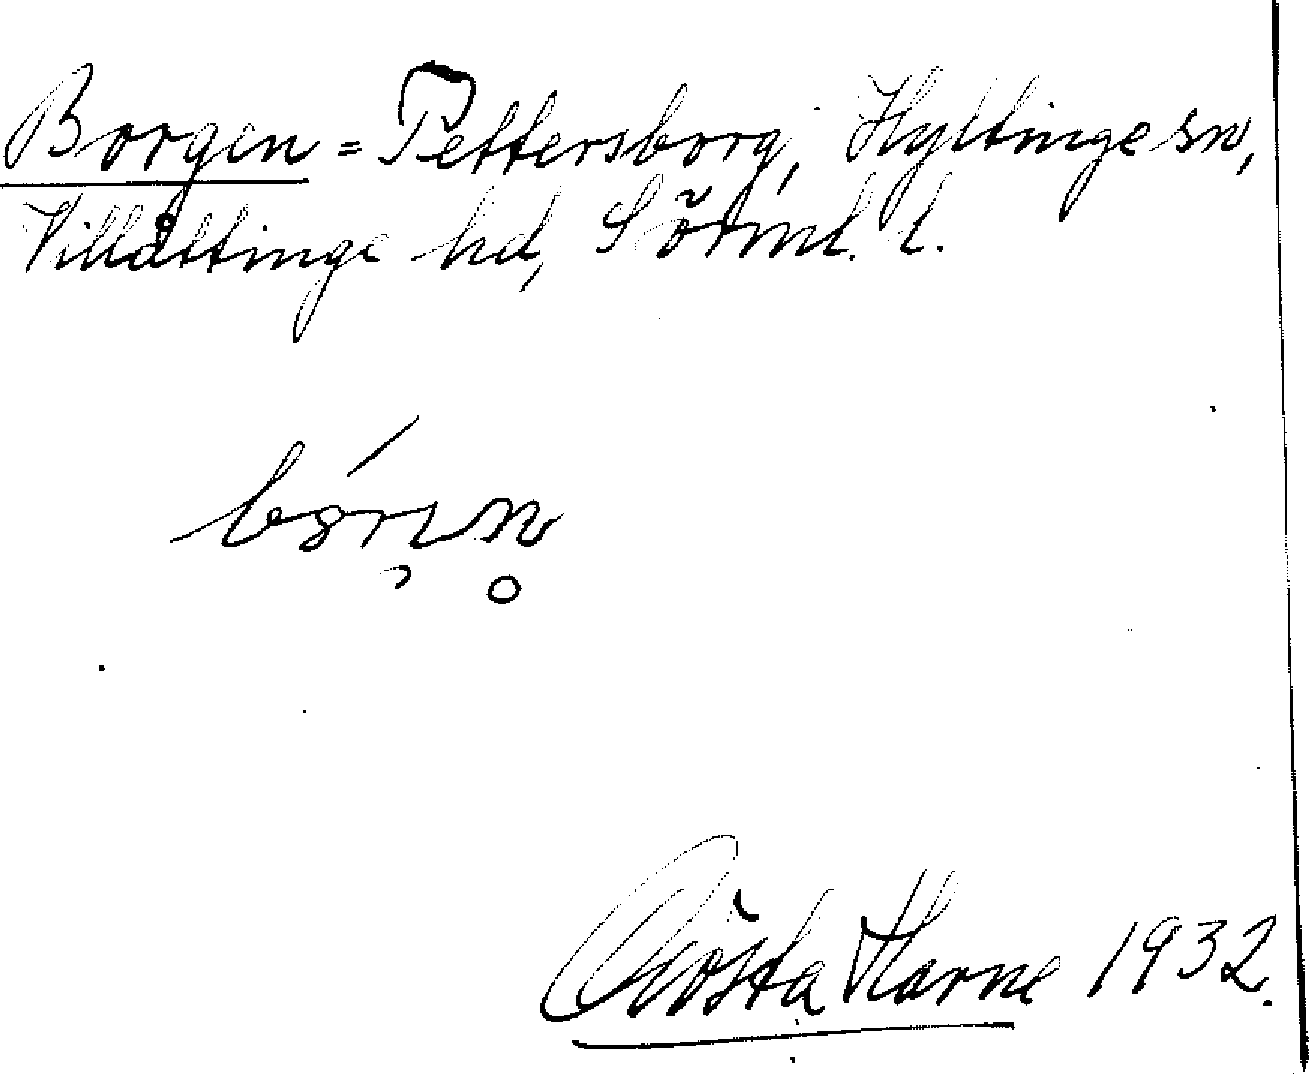 Borgen = Pettersborg, Hyltinge sn,
Villåttinge hd, Sörml. l.
Gösta Harne 1932.